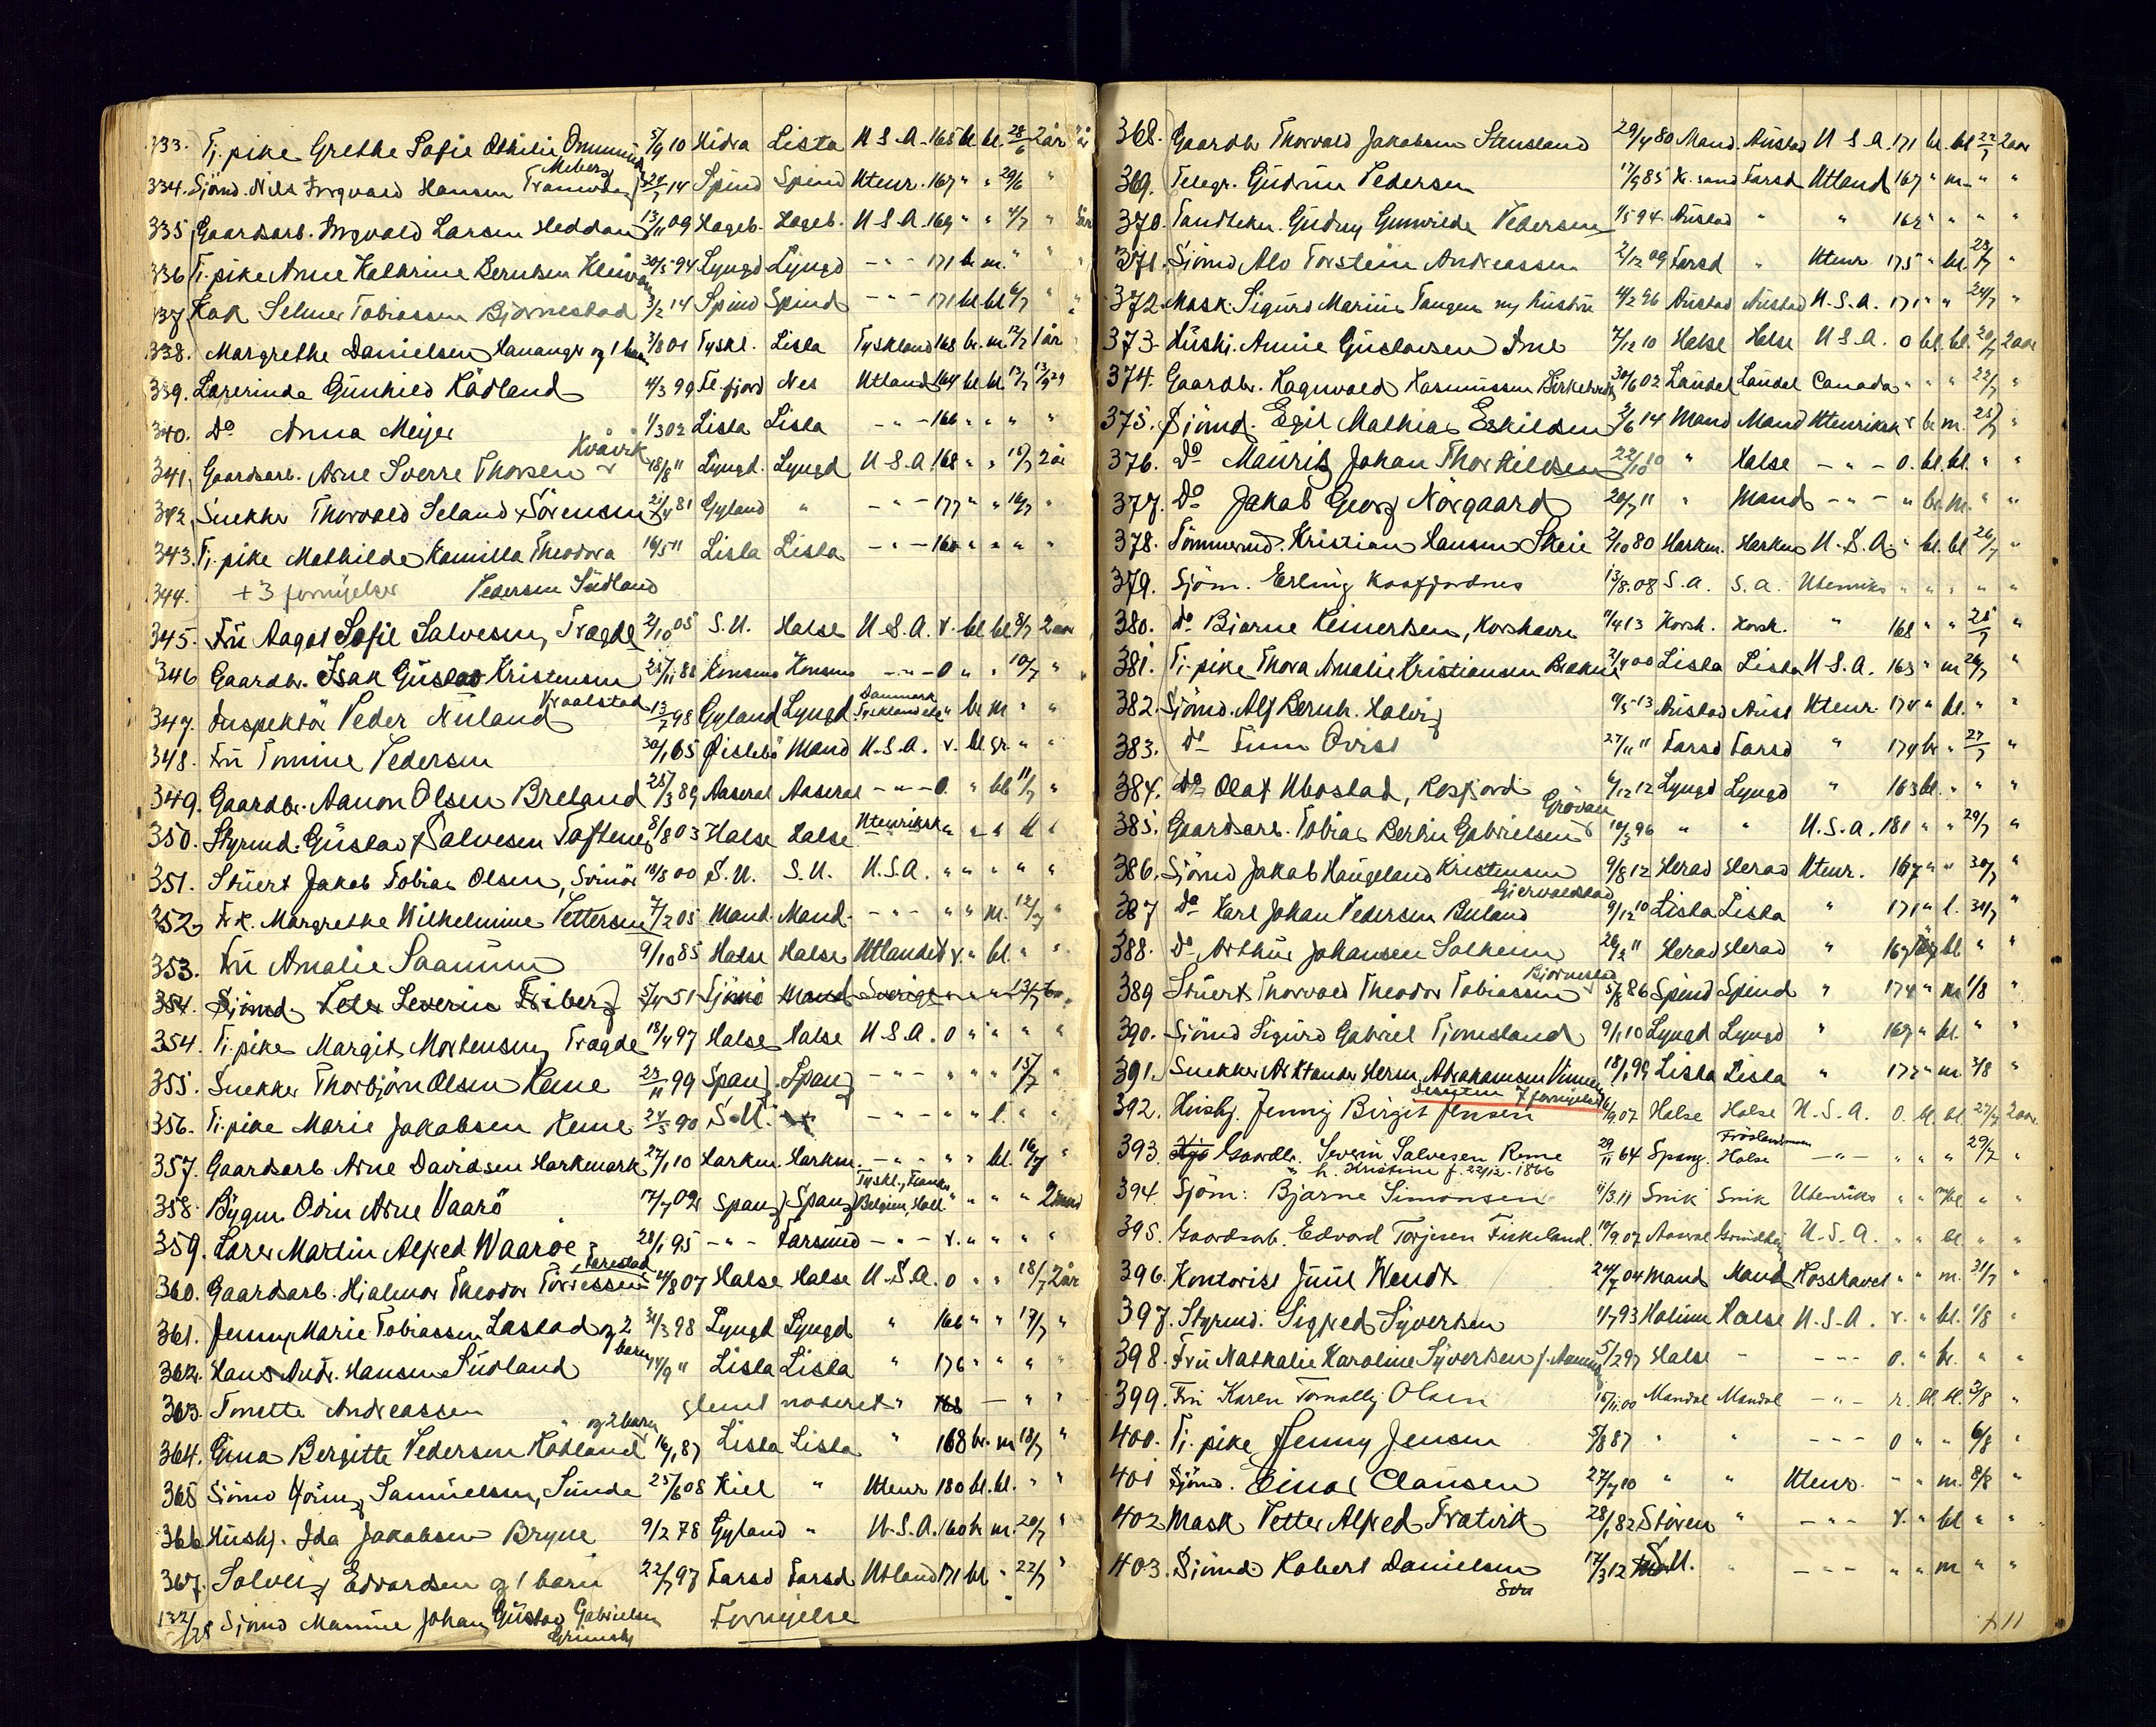 333. Tj. pike Grethe Sofie Othilie Ommund 5/9 10 Hidra Lista U S A. 165 bl bl. 28/6 2 år
Meberg
334. Sjömd. Nils Ingvald Hansen 24/7 14 Spind Spind Utenr. 167 " " 29/6 "
335. Gaardsarb. Ingvald Larsen Heddan 13/11 09 Hageb. Hageb. U S A. 169 " " 4/7 "
336. Tj. pike Anne Kathrine Berntsen 30/5 94 Lyngd Lyngd - " - 171 br m. " "
337. Kok Selmer Tobiassen Björnestad 3/2 14 Spind Spind - " - 171 bl bl 6/7 "
338. Margrethe Danielsen Hananger og 1 barn 3/8 01 Tyskl. Lista Tyskland 168 br. m. 12/7 1 år
339. Lærerinde Gunhild Rådland 4/3 99 Fl.fjord Nes Utland 164 bl. bl. 13/7
340. Do Anna Meyer 1/3 02 Lista Lista - " - 166 " " " "
Kvåvik
341. Gaardsarb. Arne Sverre Thorsen 18/8 11 Lyngd. Lyngd U S A 168 " " 16/7 2 år
342. Snekker Thorvald Seland Sörensen 21/4 81 Gyland " - " - 177 " " 16/7 "
343. Tj. pike Mathilde Kamilla Theodora 16/5 11 Lista Lista - " - 160 " " " "
344. + 3 fornyelser Pedersen Sudland
345. Fru Aagot Sofie Salvesen, Tragde 2/10 05 S. U. Halse U. S. A. r. bl bl 8/7 2 aar
346 Gaardbr. Isak Gustav Kristensen 25/11 88 Konsmo Konsmo - " - 0 " " 10/7 "
Kvaalstad Danmark
347. Inspektör Peder Nuland 13/7 98 Gyland Lyngd Tyskland etc " br m " "
348. Fru Tomine Pedersen 30/1 65 Öislebö Mand U.S.A. r. bl. gr. " "
349. Gaardbr. Aanon Olsen Breland 28/3 89 Aaseral Aaseral - " - 0. " bl 11/7 "
350. Styrmd. Gustav Salvesen Toftenes 8/8 03 Halse Halse Utenriksk " " " " "
351. Stuert Jakob Tobias Olsen, Svinör 18/8 00 S. U. S. U. U.S.A. " " " " "
352. Frk. Margrethe Wilhelmine Pettersen 7/2 05 Mand. Mand. - " - " " m. 12/7 "
353. Fru Amalie Saanum 9/10 85 Halse Halse Utlandet r. " bl. " "
354. Sjömd. Peter Severin Friberg 5/4 51 Tjömö Mand Sverige " " " 13/7
354. Tj. pike Margit Mortensen, Tragde 18/4 97 Halse Halse U.S.A. 0 " " " "
355. Snekker Thorbjörn Olsen Reme 23/11 99 Spang. Spang - " - " " " 15/7 "
356. Tj. pike Marie Jakobsen Reme 24/5 90 S. U. - " - " " l. " "
357. Gaardsarb Arne Davidsen Harkmark 27/1 10 Harkm. Harkm. - " - " " bl. 16/7 "
Tyskl., Frankr
358. Bygm. Odin Arne Vaarö 17/7 02 Spang Spang Belgien, Holl. " " " " 2 mnd
359. Lærer Martin Alfred Waaröe 28/1 95 - " - Farsund - " - r. " " " "
Jarestad
360. Gaardsarb. Hjalmar Theodor Törressen 14/8 07 Halse Halse U.S.A. 0 " " 18/7 2 år
361. Jenny Marie Tobiassen Lastad og 2 31/3 98 Lyngd Lyngd " 166 " " 17/7 "
barn
362. Hans Andr. Hansen Sudland 14/9 11 Lista Lista " 176 " " " "
363. Tonette Andreassen glemt noteret " 168 — " "
og 2 barn
364. Gina Bergitte Pedersen Rödland 16/1 87 Lista Lista " 168 br. m 18/7 "
365 Sjömd Göring Samuelsen, Sunde 25/6 08 Kiel " Utenr 180 bl. bl. " "
366 Hushj. Ida Jakobsen Bryne 9/2 78 Gyland " U.S.A. 160 br m. 20/7 "
367. Solveig Edvardsen og 1 barn 22/7 97 Farsd Farsd Utland 171 bl " 22/7 "
132/28 Sjömd Manne Johan Gustav Gabrielsen Fornyelse
Grimsby
368. Gaardbr. Thorvald Jakobsen Stensland 29/4 80 Mand. Austad U S A. 171 bl. bl 22/7 2 aar
369. Telegr. Gudrun Pedersen 17/9 85 Kr.sand Farsd Utland 167 " m " "
370. Tandtekn. Gudny Gunvilde Pedersen 1/5 94 Austad " " 162 " " " "
371. Sjömd Alv Torstein Andreassen 2/12 09 Farsd " Utenr 175 " bl. 23/7 "
372. Mask. Sigurd Marius Tangen og hustru 4/2 96 Austad Austad U.S.A. 171 " " 24/7 "
373. Hushj. Annie Gustavsen Ime 7/12 10 Halse Halse U S A. 0 bl. bl. 20/7 2 aar
374. Gaardbr. Ragnvald Rasmussen Birkeland 30/6 02 Laudal Laudal Canada " " " 22/7 "
375. Sjömd. Egil Mathias Eskildsen 3/6 14 Mand Mand Utenriksk r br m. 25/7 "
376. Do Maurits Johan Thorkildsen 22/10 10 " Halse - " - 0. bl. bl. " "
377. Do Jakob Georg Nörgaard 20/7 11 " Mand - " - " br. m. " "
378. Tömmermd. Kristian Hansen Skeie 2/10 80 Harkm. Harkm U.S.A. " bl. bl 26/7 "
379. Sjöm. Erling Kaafjordnes 13/8.08 S.a. S.a. Utenriks " " " " "
380. do Bjarne Reinertsen, Korshavn 11/4 13 Korsh. Korsh. " 168 " " 25/7 "
381. Tj. pike Thora Amalie Kristiansen 21/4 00 Lista Lista U S.A. 163 " m 26/7 "
382. Sjömd. Alf Bernh. Halvorsen 9/5 13 Austad Aust Utenr. 174 " bl. " "
383. do Finn Qvist 27/11 11 Farsd Farsd " 174 br " 27/7 "
384. do Olaf Ubostad, Rosfjord 6/12 12 Lyngd Lyngd " 163 bl. " " "
Grovan
385. Gaardsarb. Tobias Bertin Gabrielsen 10/3 96 " " U.S.A. 181 " " 29/7 "
386. Sjömd Jakob Haugeland Kristensen 9/8 12 Herad Herad Utenr. 167 " " 30/7 "
Gjervoldstad
387 do Karl Johan Pedersen Buland 9/12 10 Lista Lista " 171 " l. 31/7 "
388. Do Arthur Johansen Solheim 26/2 11 Herad Herad " 167 bl " "
Björnestad
389 Stuert Thorvald Theodor Tobiassen 5/8 86 Spind Spind " 174 " m 1/8 "
390. Sjömd Sigurd Gabriel Tjomsland 9/1 10 Lyngd Lyngd " 169 " bl. " "
391. Snekker Herm. Abrahamsen 18/1 99 Lista Lista " 177 " m. 3/8 "
7 fornyelser
392. Hushj. Jenny Birgit Jensen 16/9.07 Halse Halse U.S.A. 0. bl. bl. 27/7 2 aar
393. Gaardbr. Severin Salvesen Reme 29/11 64 Spang. Halse - " - " " " 29/7 "
" h. Kristine f. 22/12 - 1866
394. Sjöm: Bjarne Simonsen 11/3.11 Snik Snik Utenriks " " bl. " "
395. Gaardsarb. Edvard Torjesen Fiskeland. 10/9.07 Aaseral Grindheim U.S.A. " " bl. " "
396. Kontorist Juul Wendt 24/7 04 Mand Mand Kosshavet " " m. 31/7 "
397. Styrmd. Sigfred Syvertsen 11/7 93 Holum Halse U.S.A. r. " bl. 1/8 "
398. Fru Nathalie Karoline Syvertsen 5/2 97 Halse - - " - 0. " br. " "
399. Fru Karen Tomally Olsen 15/11.00 Mandal Mandal - " - r. bl. bl. 3/8 "
400. Tj. pike Jenny Jensen 5/8 87 " " - " - 0 " " 6/8 "
401 Sjömd. Einar Clausen 27/7 10 " " Utenr. - " m. 8/8 "
402 Mask. Petter Alfred Fratirk 28/1 82 Stören " - " - r. " bl " "
403. Sjömd Robert Danielsen 17/3 12 S.U. " - " - " " m " "
+ 11